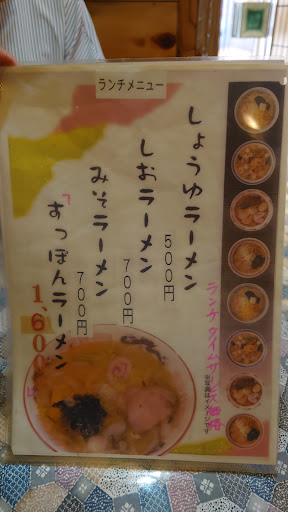 ランチメニュー
しょうゆラーメン
500円
しおラーメン
700円
みそラーメン
700円
「すっぽんラーメン
1,600
ランチタイムサービス価格
※写真はイメージです